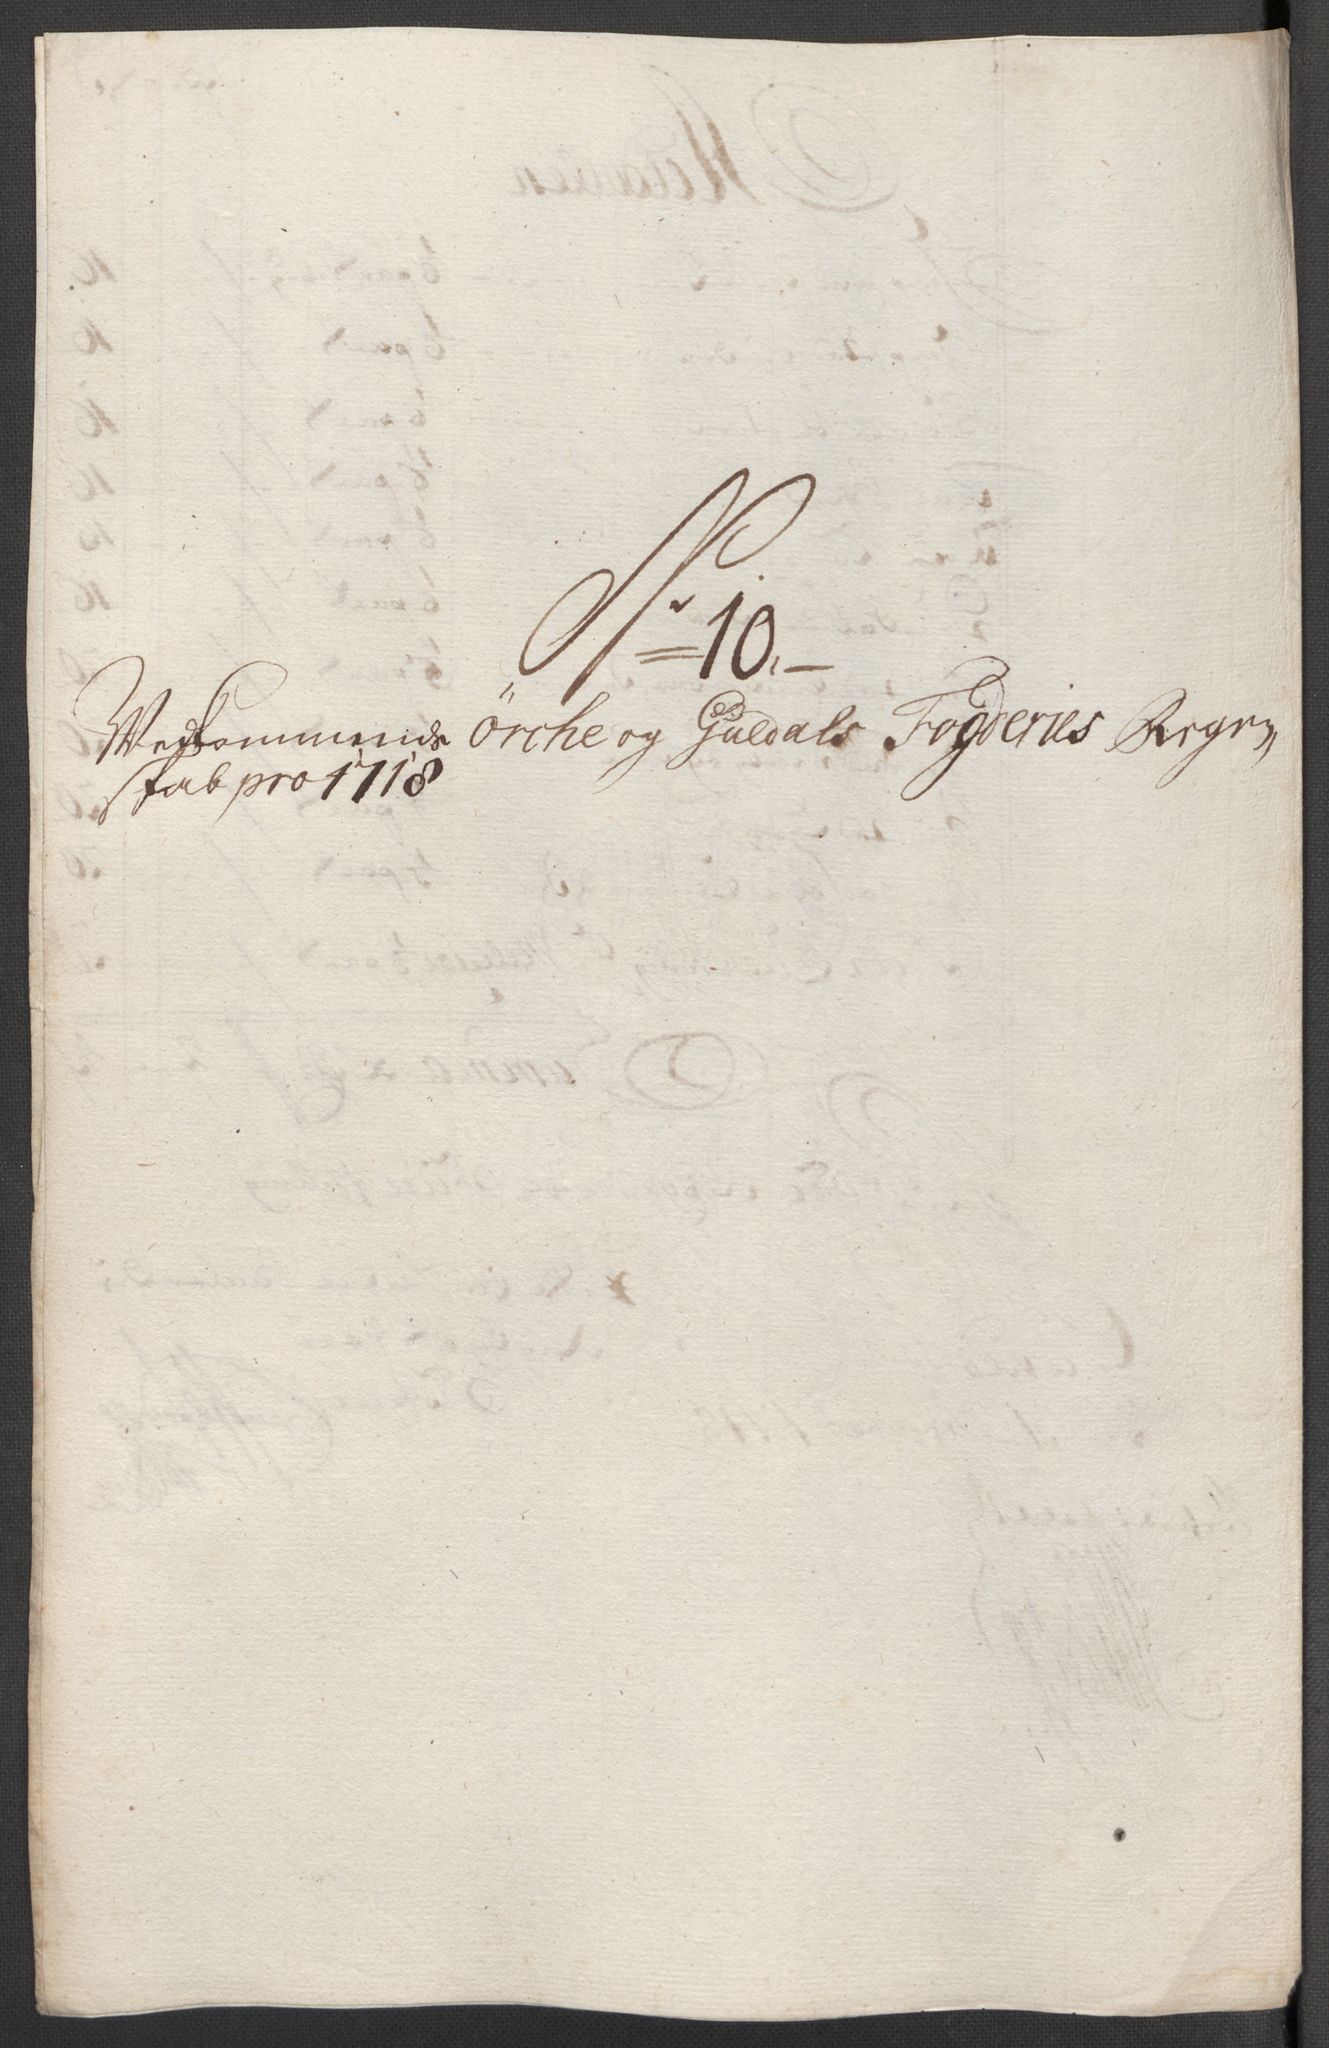 No 10.
Vedkommende Örche og Guldals Fogderies Regen„
skab pro 1718